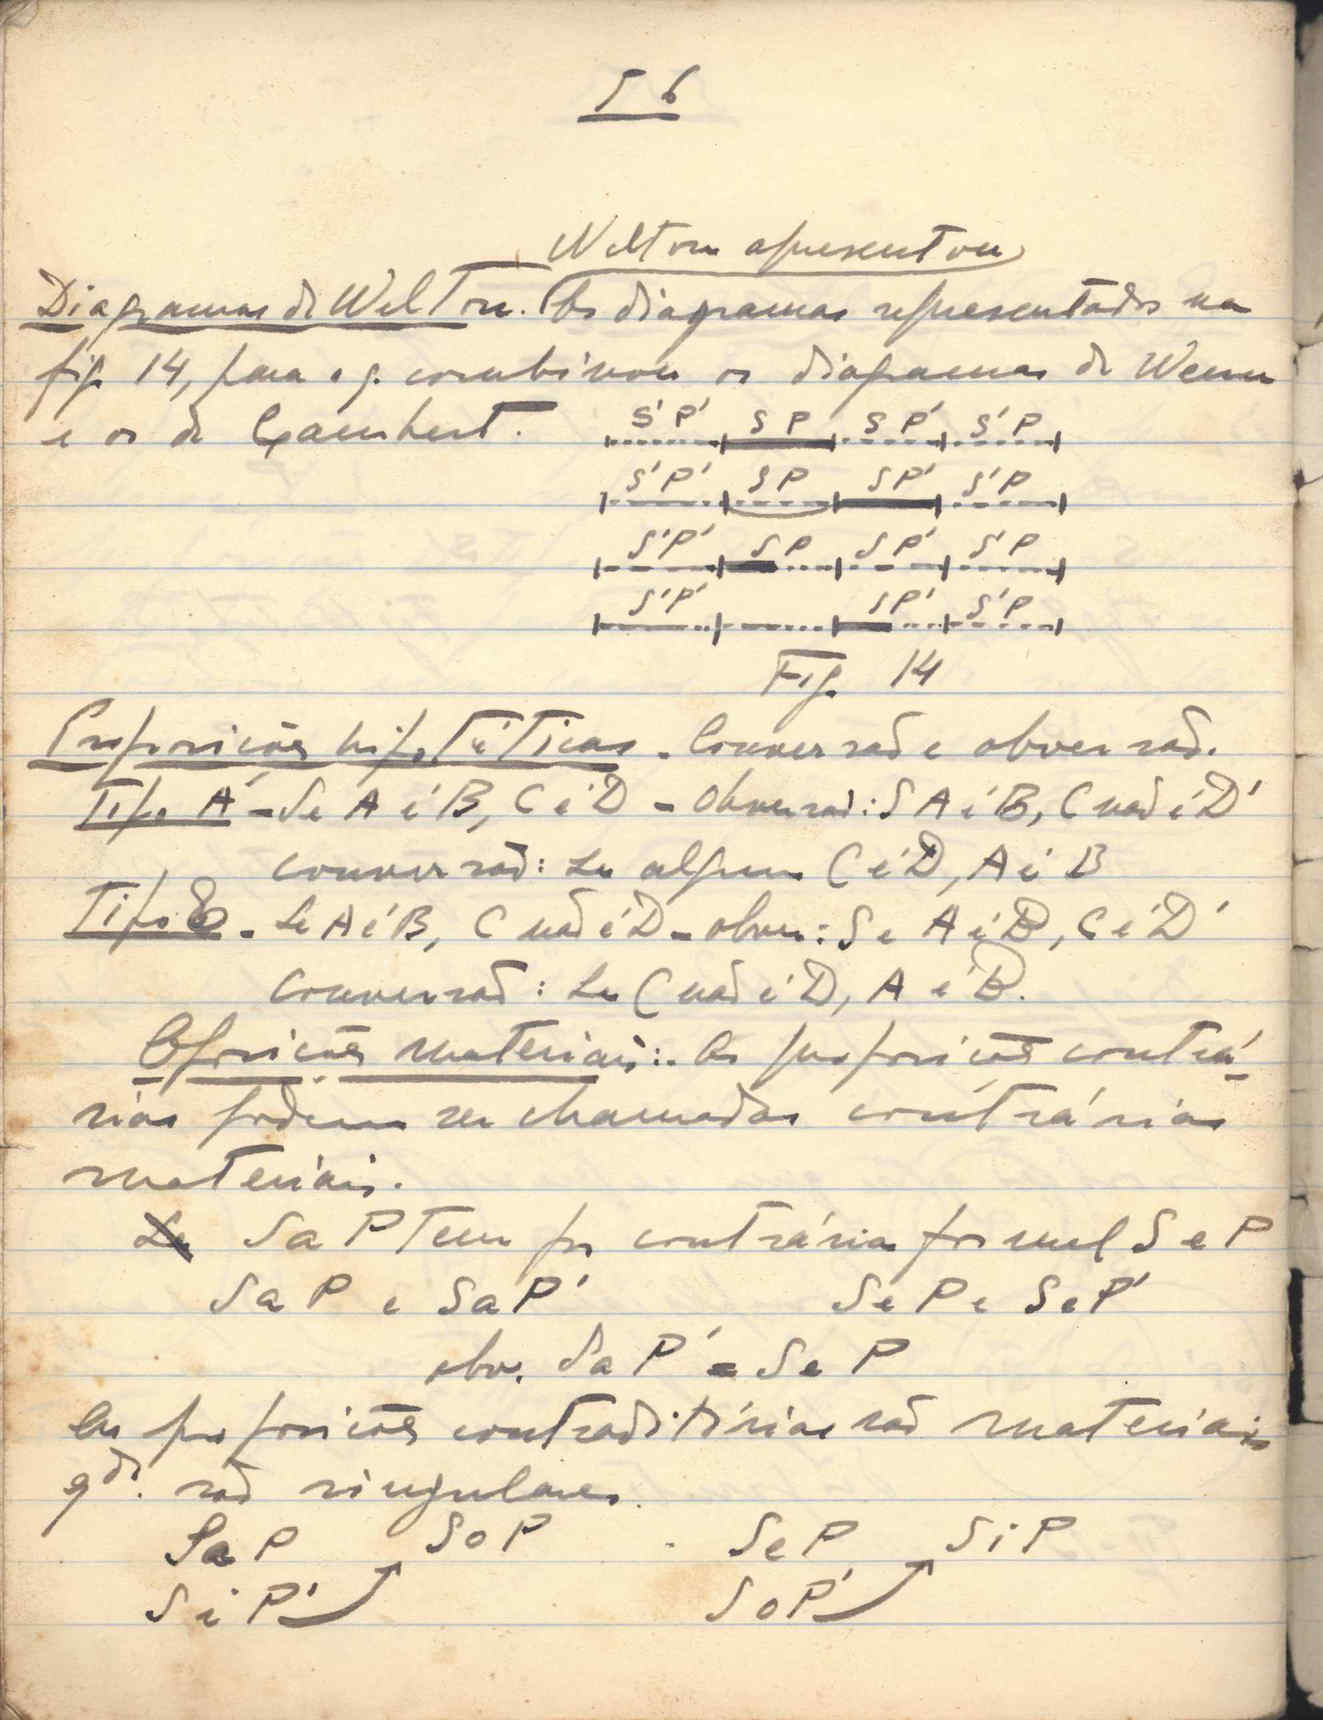 56
Welton apresentou
Diagramas de Welton. Os diagramas representados na
fig. 14, para o q. combinou os diagramas de Wenn
e os de Lambert.
S'P' SP SP' S'P
S'P' SP SP' S'P
S'P' SP SP' S'P
S'P' SP' S'P
Fig. 14
Proposições hipotéticas - Conversão e obversão.
Tipo A - Se A é B, C é D - Obversão: S A é B, C não é D'
conversão: Se algum C é D, A é B
Tipo E - Se A é B, C não é D - obver: Se A é B, C é D'
Conversão: Se C não é D, A é B.
Oposições materiais:. As proposições contrá-
rias podem ser chamadas contrárias
materiais.
Se SaP tem por contrária formal SeP
SaP e SaP' SeP e SeP'
obv. SaP' = SeP
As proposições contraditórias são materiais
qdo. são singulares.
SaP SoP SeP SiP
SiP' SoP'